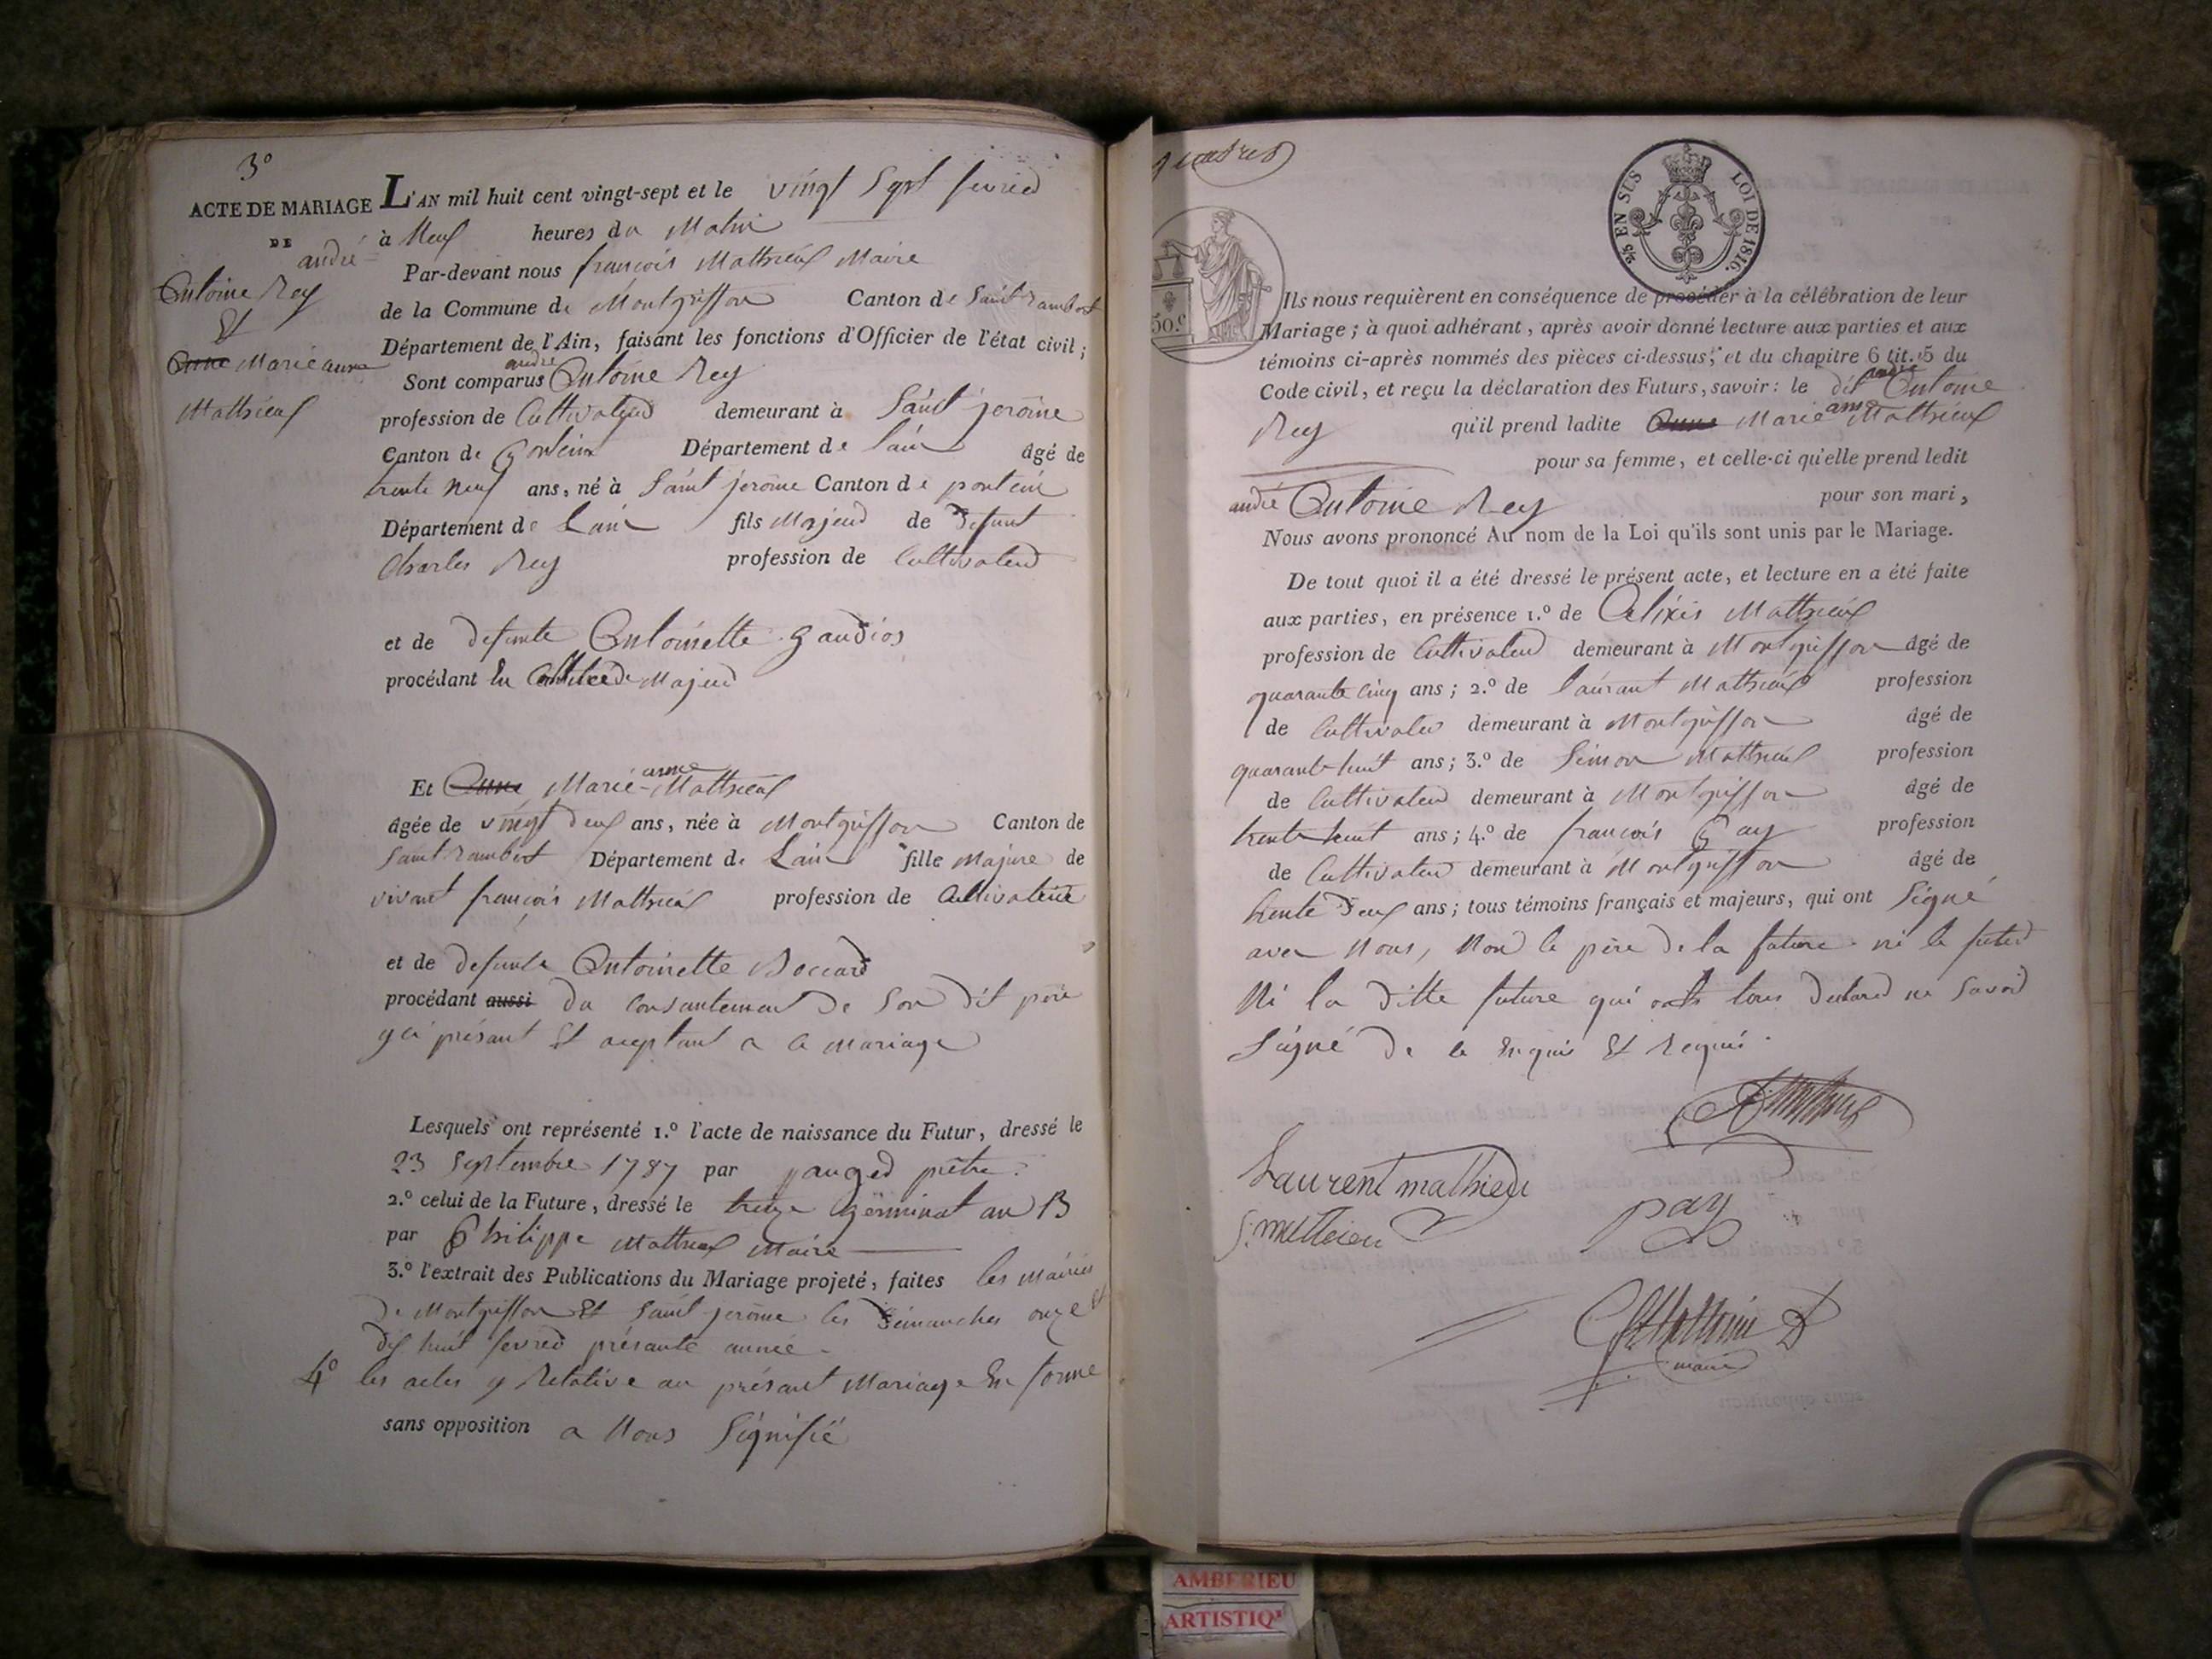 3º
ACTE DE MARIAGE
DE
andré
Antoine Rey
Et
Anne Marie anne
Mathieux
L'AN mil huit cent vingt-sept et le vingt Sept fevrier
à Neuf heures du Matin
Par-devant nous françois Mathieux Maire
de la Commune de Montgriffon Canton de Saint rambert
Département de l'Ain, faisant les fonctions d'Officier de l'état civil;
Sont comparus andré Antoine Rey
profession de Cultivateur demeurant à Saint jerôme
Canton de Département de Lain âgé de
trente neuf ans, né à Saint jerôme Canton de
Département de Lain fils Majeur de defunt
Charles Rey profession de Cultivateur
et de defunte Antoinette
procédant En Majeur
Et Anne Marie anne Mathieux
âgée de vingt deux ans, née à Montgriffon Canton de
Saint rambert Département de Lain fille Majeure de
vivant françois Mathieux profession de Cultivateur
et de defunte Antoinette Boccard
procédant aussi du Consantement de Son dit père
y ci présant Et aceptant a ce mariage
Lesquels ont représenté 1.º l'acte de naissance du Futur, dressé le
23 Septembre 1787 par prêtre.
2.º celui de la Future, dressé le treize germinal an 13
par Philippe Mathieux Maire
3.º l'extrait des Publications du Mariage projeté, faites les Mairies
de Montgriffon Et Saint jerôme les dimanches onze et
dix huit fevrier présante année.
4º les actes y Relative au présant Mariage En forme
sans opposition a Nous Signifié
50.c
EN SUS LOI DE 1816.
Ils nous requièrent en conséquence de procéder à la célébration de leur
Mariage; à quoi adhérant, après avoir donné lecture aux parties et aux
témoins ci-après nommés des pièces ci-dessus, et du chapitre 6 tit. 5 du
Code civil, et reçu la déclaration des Futurs, savoir: le dit andré Antoine
Rey qu'il prend ladite Anne Marie anne Mathieux
pour sa femme, et celle-ci qu'elle prend ledit
andré Antoine Rey pour son mari,
Nous avons prononcé Au nom de la Loi qu'ils sont unis par le Mariage.
De tout quoi il a été dressé le présent acte, et lecture en a été faite
aux parties, en présence 1.º de Alixis Mathieux
profession de Cultivateur demeurant à Montgriffon âgé de
quarante cinq ans; 2.º de laurant Mathieux profession
de Cultivateur demeurant à Montgriffon âgé de
quarante huit ans; 3.º de Simon Mathieux profession
de Cultivateur demeurant à Montgriffon âgé de
trente huit ans; 4.º de françois profession
de Cultivateur demeurant à Montgriffon âgé de
trente deux ans; tous témoins français et majeurs, qui ont Signé
avec Nous, Non le père de la future ni le futur
Ni la ditte future qui onts tous declaré ne Savoir
Signé de ce Enquis Et Requis.
Laurent mathieu
pay
S. mathieu
maire
AMBERIEU
ARTISTIQ